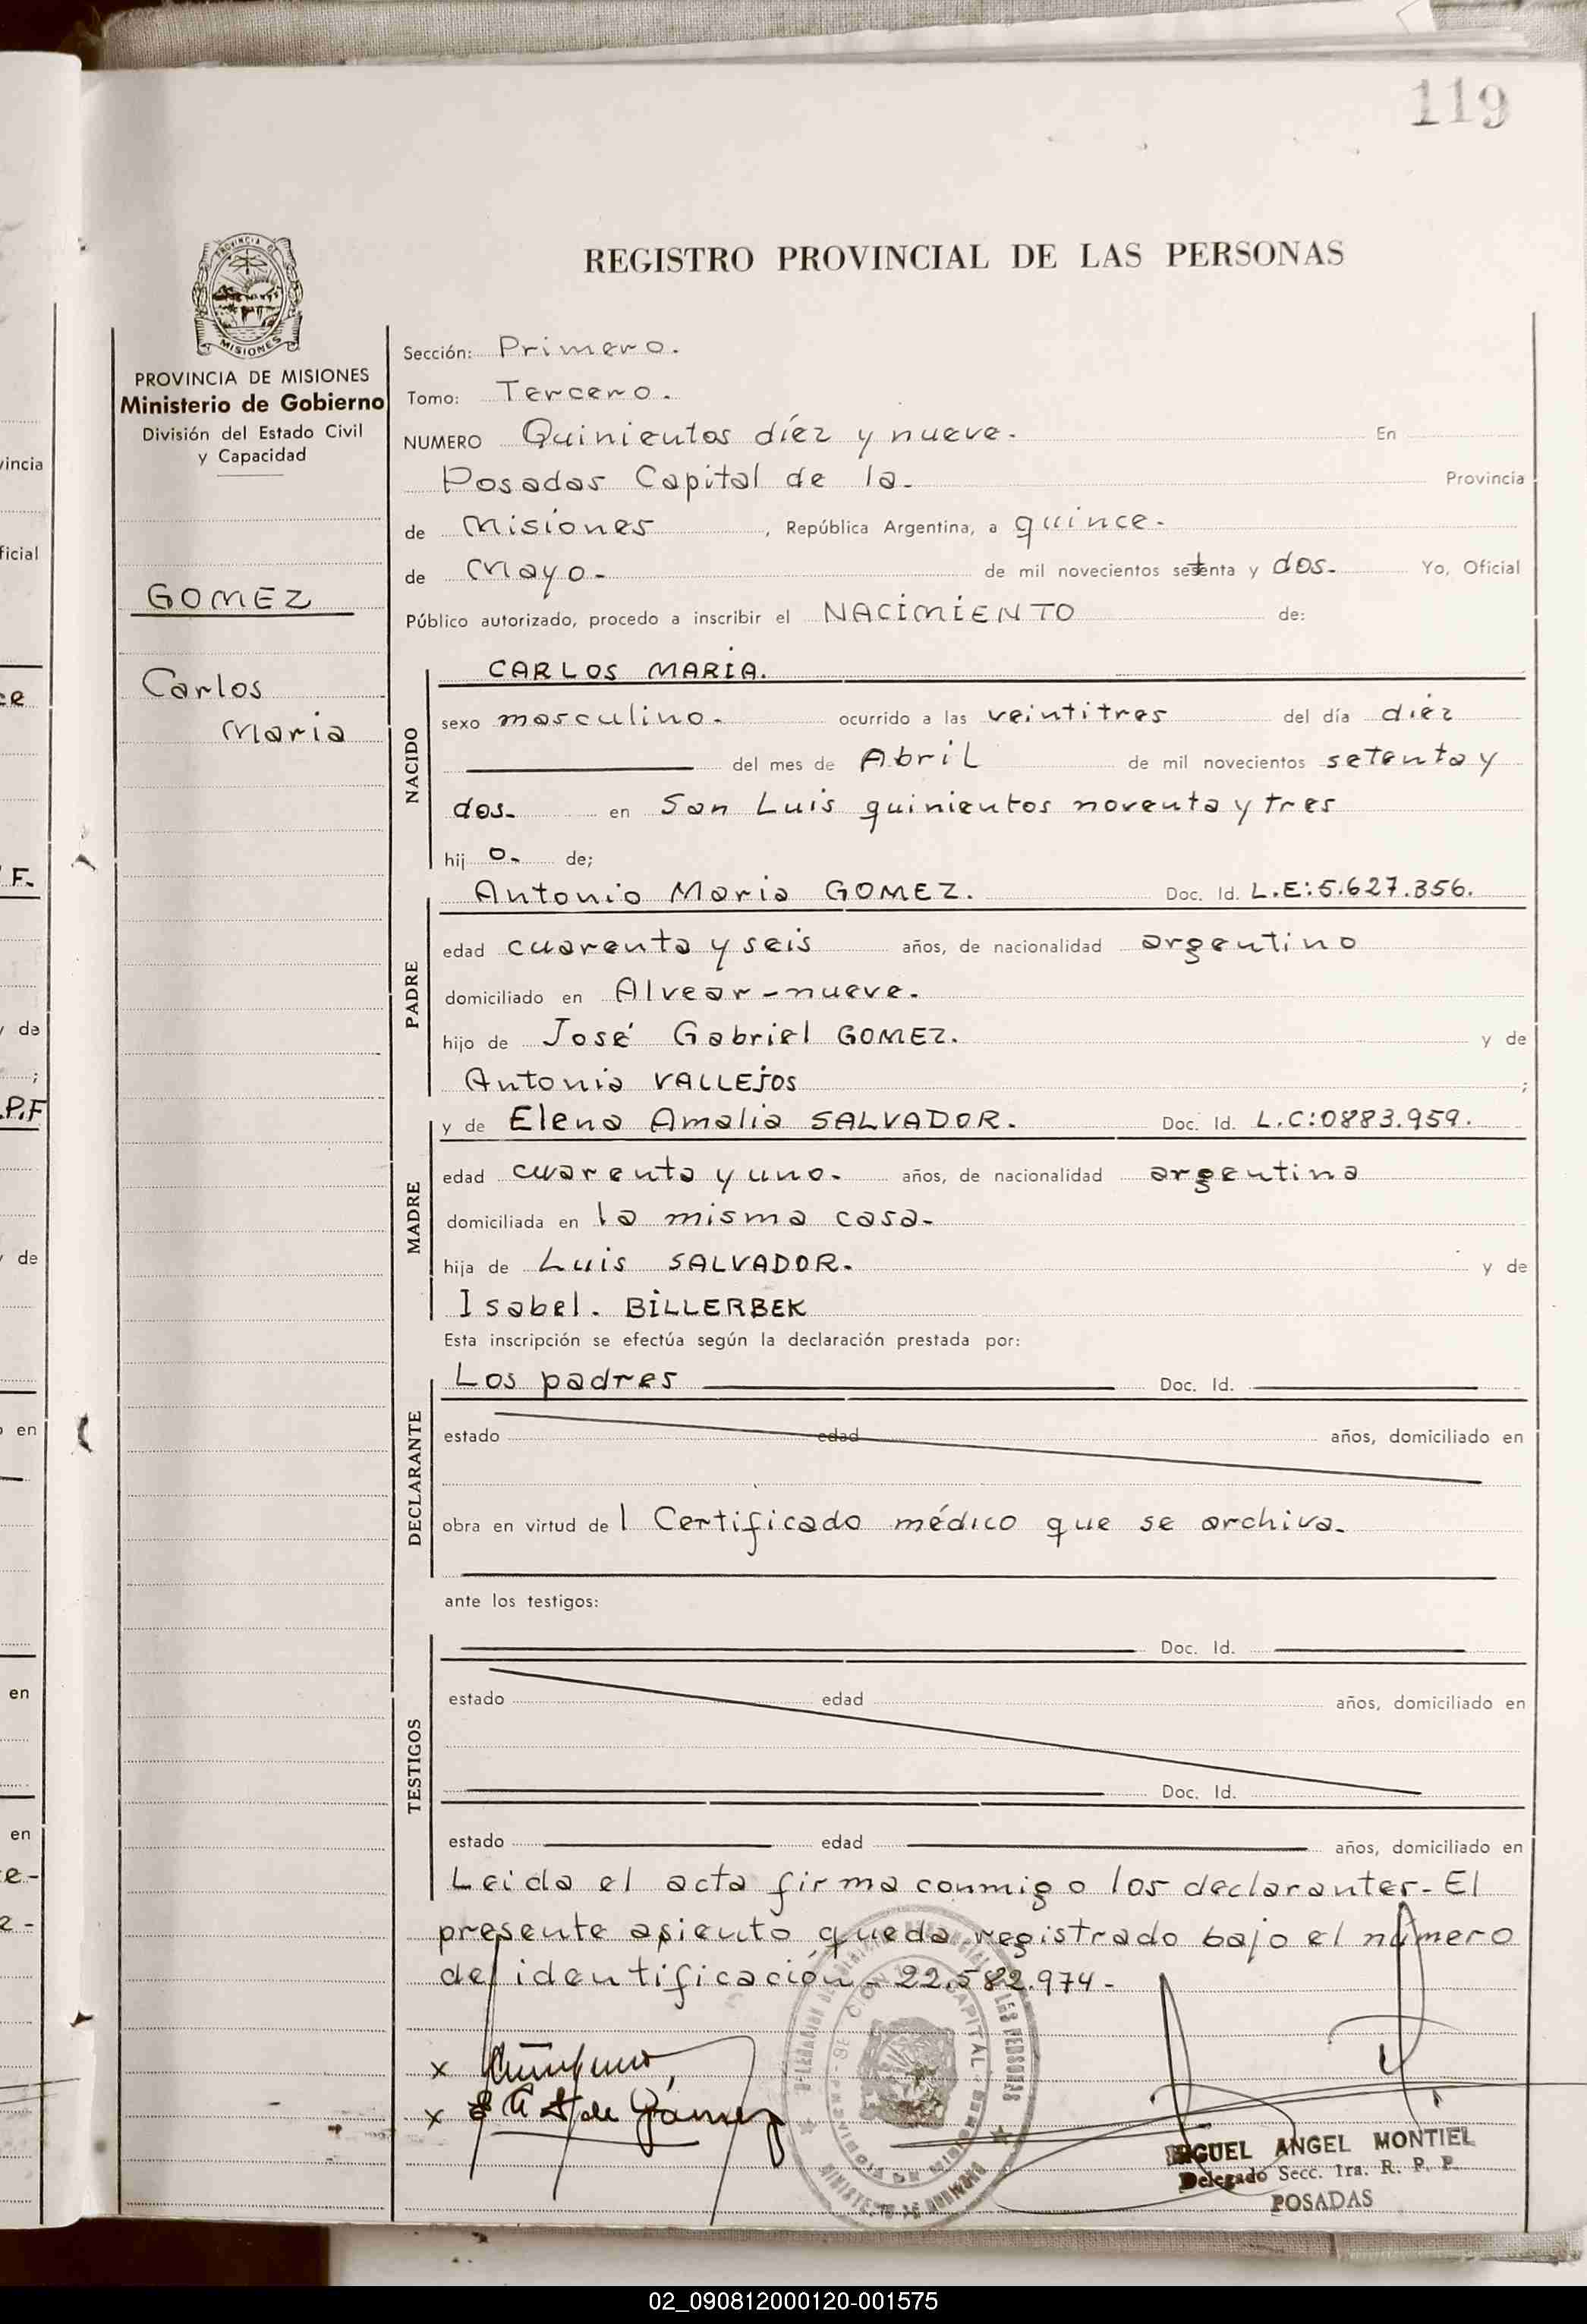 119
REGISTRO PROVINCIAL DE LAS PERSONAS
PROVINCIA DE MISIONES
Ministerio de Gobierno
División del Estado Civil
y Capacidad
GOMEZ
Carlos
Maria
Sección: Primero.
Tomo: Tercero.
NUMERO Quinientos diéz y nueve. En
Posadas Capital de la. Provincia
de Misiones, República Argentina, a quince.
de Mayo. de mil novecientos setenta y dos. Yo, Oficial
Público autorizado, procedo a inscribir el NACIMIENTO de:
NACIDO
CARLOS MARIA.
sexo masculino. ocurrido a las veintitres del día diéz
del mes de Abril de mil novecientos setenta y
dos. en San Luis quinientos noventa y tres
hij o. de;
PADRE
Antonio Maria GOMEZ. Doc. Id. L.E:5.627.356.
edad cuarenta y seis años, de nacionalidad argentino
domiciliado en Alvear-nueve.
hijo de José Gabriel GOMEZ. y de
Antonia VALLEJOS ;
MADRE
y de Elena Amalia SALVADOR. Doc. Id. L.C:0883.959.
edad cuarenta y uno. años, de nacionalidad argentina
domiciliada en la misma casa.
hija de Luis SALVADOR. y de
Isabel. BILLERBEK
Esta inscripción se efectúa según la declaración prestada por:
DECLARANTE
Los padres Doc. Id.
estado edad años, domiciliado en
obra en virtud de l Certificado médico que se archiva.
ante los testigos:
TESTIGOS
Doc. Id.
estado edad años, domiciliado en
Doc. Id.
estado edad años, domiciliado en
Leida el acta firma conmigo los declarantes. El
presente asiento queda registrado bajo el número
de identificación 22.582.974-
x
x de Gómez
MIGUEL ANGEL MONTIEL
Delegado Secc. 1ra. R. P. P.
POSADAS
02_090812000120-001575